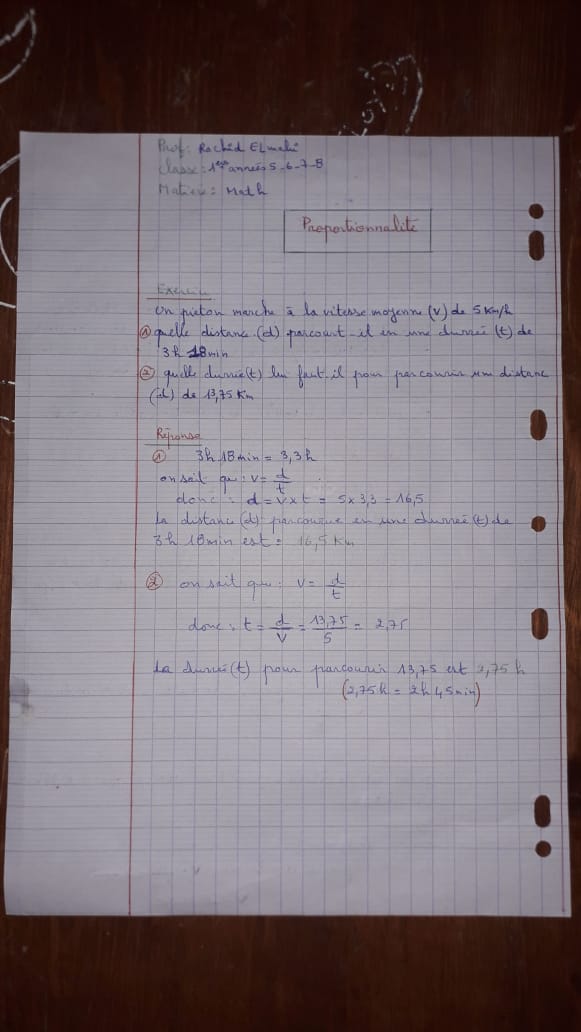 Prof: Rachid ELmehi
Classe: 1ère années 5-6-7-8
Matière: Math
Proportionnalité
Exercice
Un piéton marche à la vitesse moyenne (v) de 5 Km/h
① quelle distance (d) parcourt-il en une durrée (t) de
3h 18min
② quelle durrée(t) lui faut il pour parcourir um distance
(d) de 13,75 Km
Réponse
① 3h 18min = 3,3h
on sait que : v = d/t
donc : d = v x t = 5 x 3,3 = 16,5
la distance (d) parcourue en une durrée (t) de
3h 18min est = 16,5 Km
② on sait que : v = d/t
donc : t = d/v = 13,75/5 = 2,75
La durrée(t) pour parcourir 13,75 est 2,75 h
(2,75h = 2h 45min)